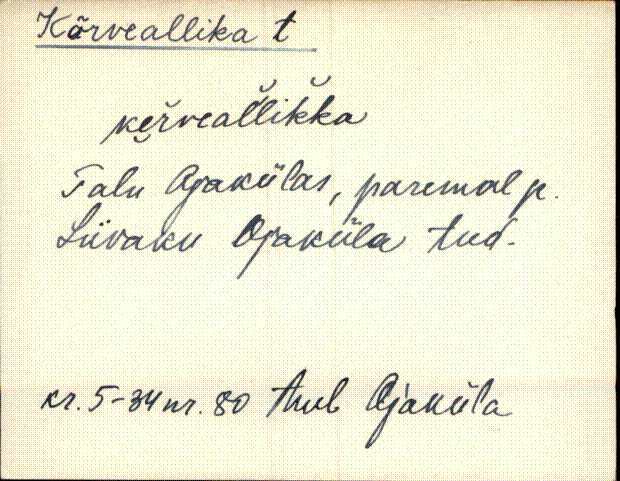 Kõrveallika t
kĕrveal̆lik̆ka
Talu Ojakülas, paremal p.
Liivaku Ojaküla tud.
kr. 5-34 nr. 80 Amb Ojaküla